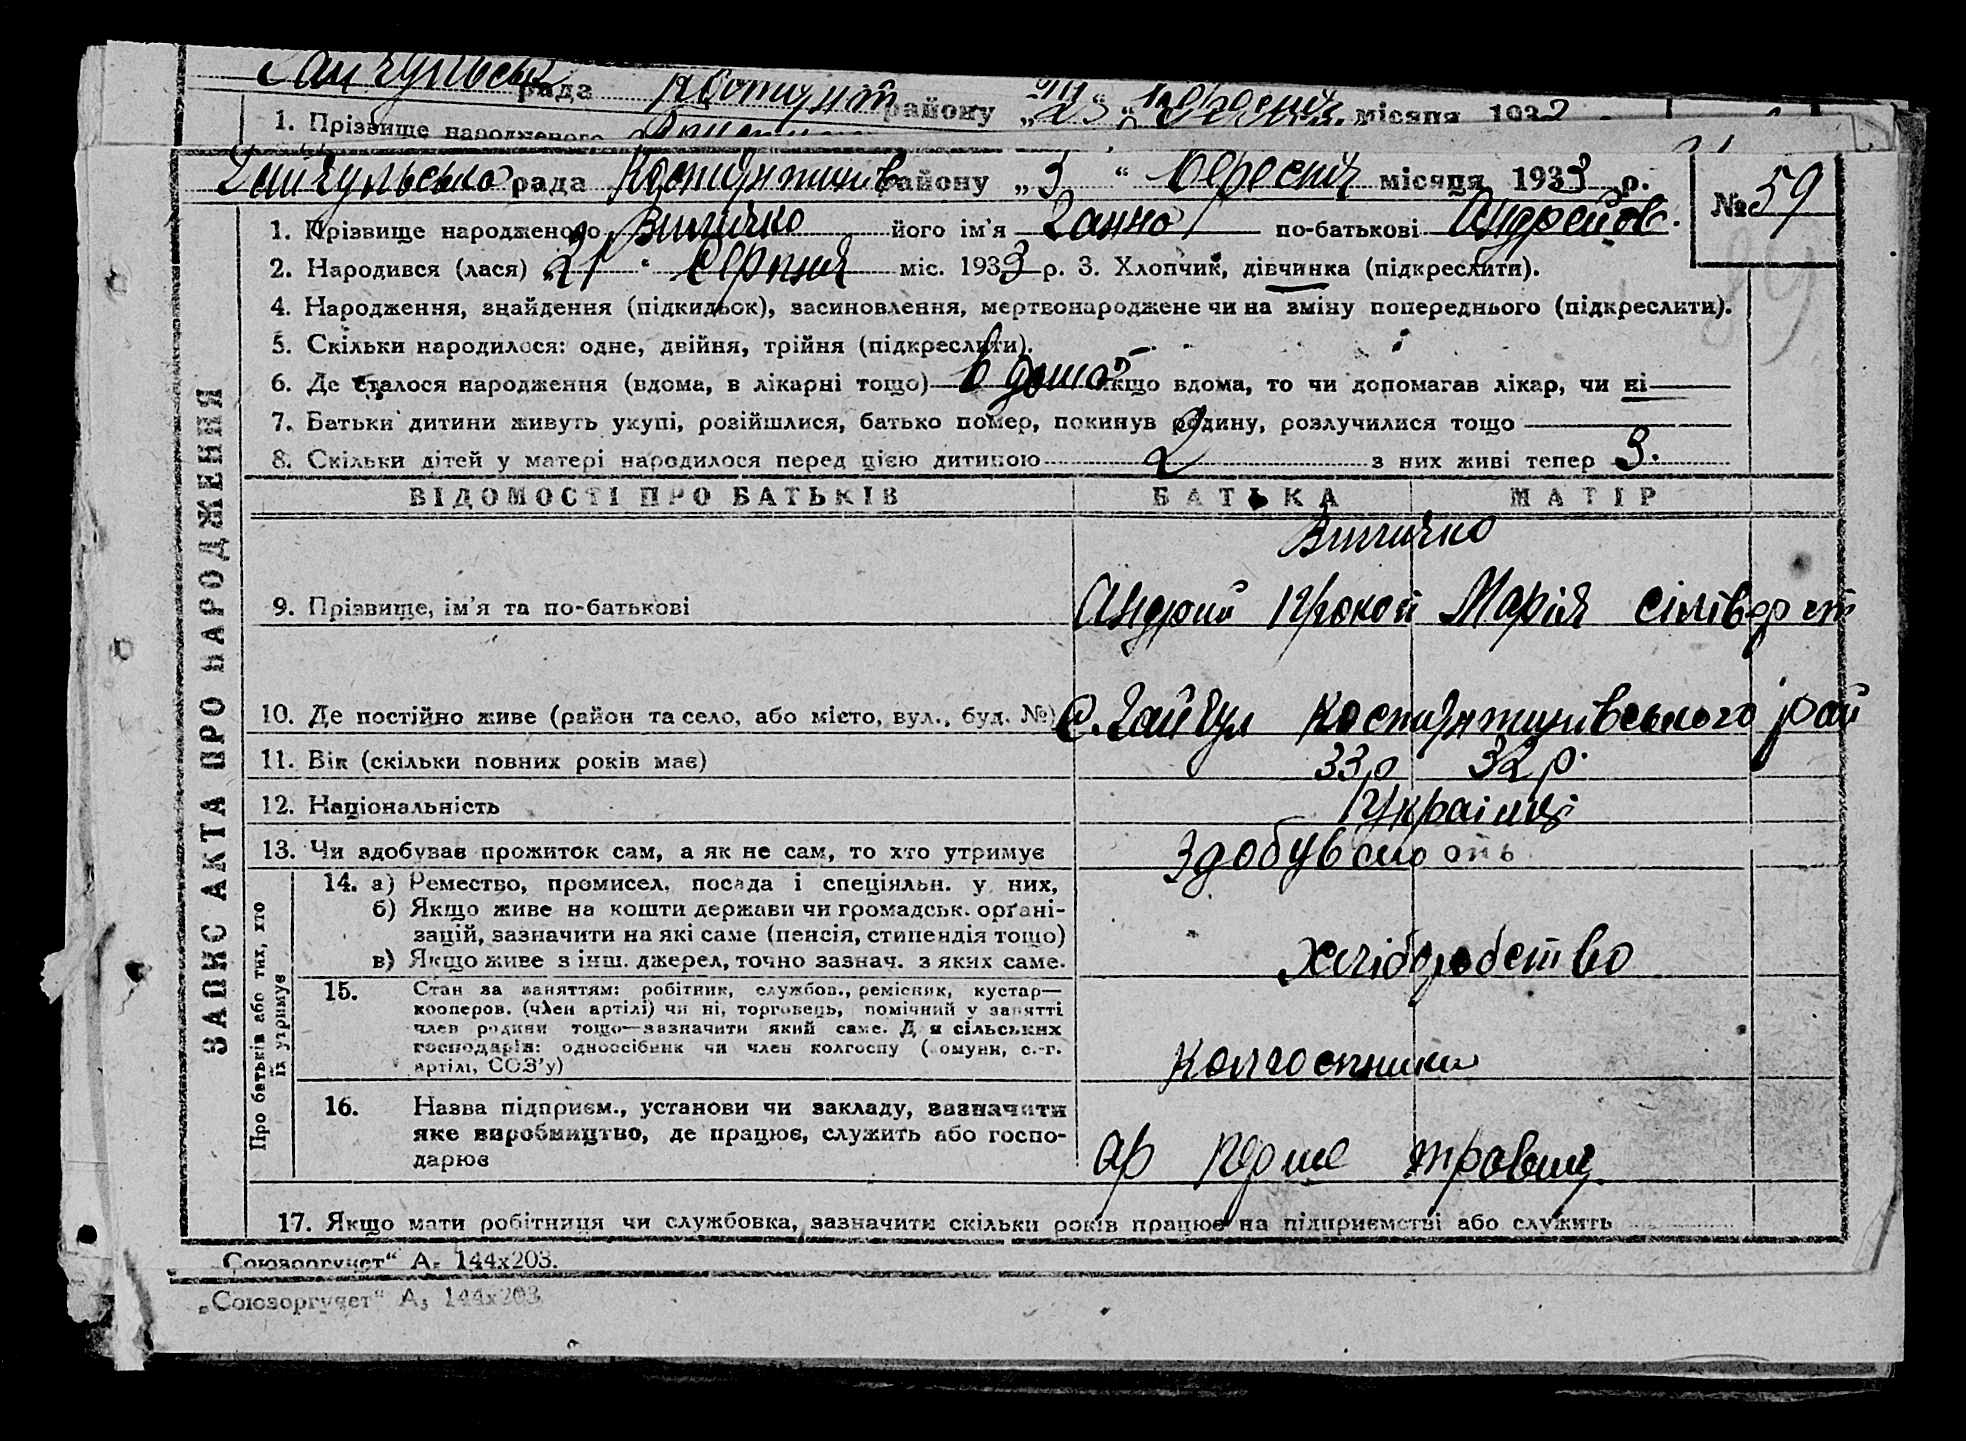 Гайчульська рада Костянт району „23“ вересня місяця 1932
1. Прізвище народженого
Гайчульсько рада Костянтинів району „3“ вересня місяця 1933 р.
№ 59
1. Прізвище народженого його ім'я Ганна по-батькові Андреїов.
2. Народився (лася) 21 серпня міс. 1933 р. 3. Хлопчик, дівчинка (підкреслити).
4. Народження, знайдення (підкидьок), засиновлення, мертвонароджене чи на зміну попереднього (підкреслити).
89
5. Скільки народилося: одне, двійня, трійня (підкреслити).
6. Де сталося народження (вдома, в лікарні тощо) в дома якщо вдома, то чи допомагав лікар, чи ні
7. Батьки дитини живуть укупі, розійшлися, батько помер, покинув родину, розлучилися тощо
8. Скільки дітей у матері народилося перед цією дитиною 2 з них живі тепер 3.
ЗАПИС АКТА ПРО НАРОДЖЕННЯ
ВІДОМОСТІ ПРО БАТЬКІВ БАТЬКА МАТІР
9. Прізвище, ім'я та по-батькові Андрий Прокоп Марія Сілівѳрст
10. Де постійно живе (район та село, або місто, вул., буд. №) с. Гайчул Костянтинівського рай
11. Вік (скільки повних років має) 33 р 32 р.
12. Національність Українці
13. Чи здобував прожиток сам, а як не сам, то хто утримує
Про батьків або тих, хто їх утримує
14. а) Ремество, промисел, посада і спеціяльн. у них,
б) Якщо живе на кошти держави чи громадськ. орґані-
зацій, зазначити на які саме (пенсія, стипендія тощо)
в) Якщо живе з інш. джерел, точно зазнач. з яких саме. Хліборобство
15. Стан за заняттям: робітник, службов., ремісник, кустар—
кооперов. (член артілі) чи ні, торговець, помічний у занятті
член родини тощо—зазначити який саме. Для сільських
господарів: одноосібник чи член колгоспу (комуни, с.-г.
артілі, СОЗ'у) Колгоспники
16. Назва підприєм., установи чи закладу, зазначити
яке виробництво, де працює, служить або госпо-
дарює ар Перше травня
17. Якщо мати робітниця чи службовка, зазначити скільки років працює на підприємстві або служить
„Союзоргучет“ А₅ 144х203.
„Союзоргучет“ А₅ 144х203